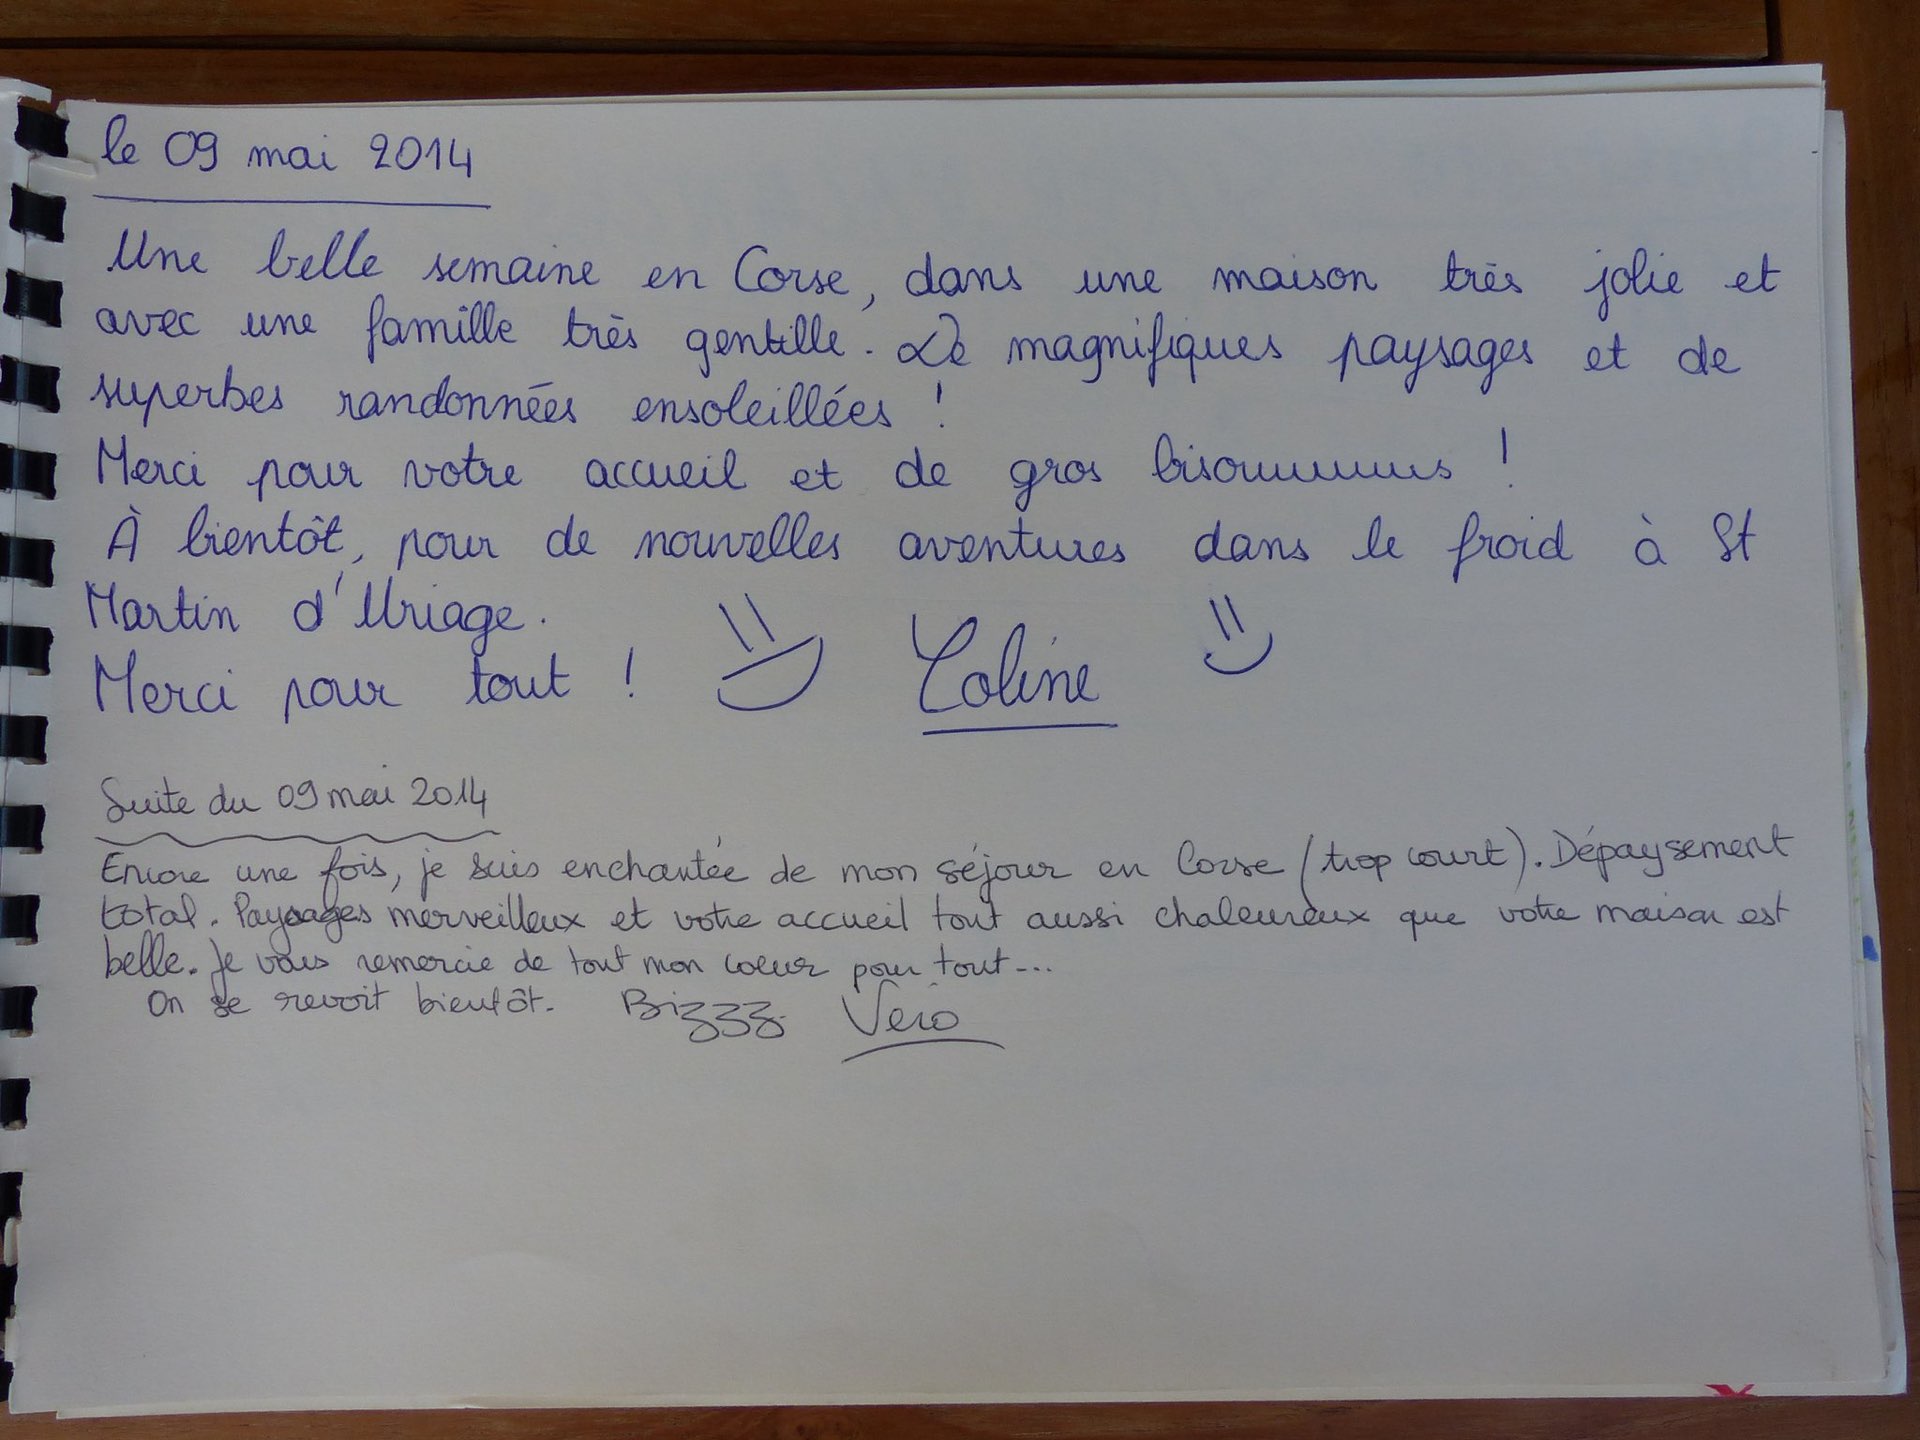 le 09 mai 2014
Une belle semaine en Corse, dans une maison très jolie et
avec une famille très gentille. De magnifiques paysages et de
superbes randonnées ensoleillées !
Merci pour votre accueil et de gros bisouuuuuus !
À bientôt, pour de nouvelles aventures dans le froid à St
Martin d'Uriage.
Merci pour tout ! Coline
Suite du 09 mai 2014
Encore une fois, je suis enchantée de mon séjour en Corse (trop court). Dépaysement
total. Paysages merveilleux et votre accueil tout aussi chaleureux que votre maison est
belle. Je vous remercie de tout mon coeur pour tout...
On se revoit bientôt. Bizzz. Véro